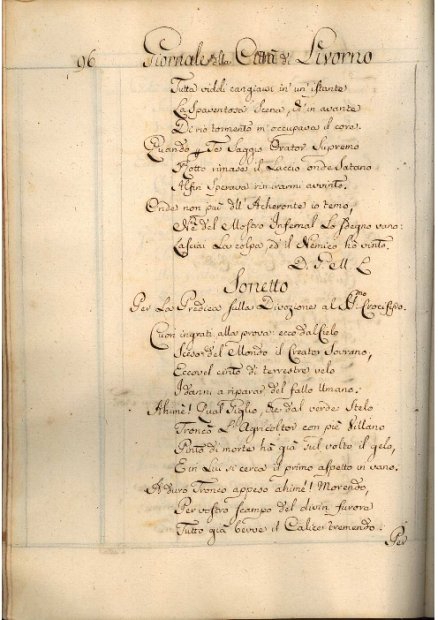 96 Giornale della Città di Livorno
Tutta viddi cangiarsi in' un' istante
La Spaventosa Scena, di in avante
Di rio tormento m' occupava il core.
Quando Te Saggio Orator Supremo
Rotto rimase il Laccio onde Satano
Alfin Sperava rimirarmi avvinto.
Onde non più dell' Acheronte io temo,
Nè del Mostro Infernal Lo sdegno vano:
Lasciai La colpa, ed il Nemico hò vinto.
D. P. ell L
Sonetto
Per La Predica sulla Divozione al SSmo Crocifisso.
Cuori ingrati alla prova: ecco dal Cielo
Sceso del Mondo il Creator Sovrano,
Eccovel cinto di terrestre velo
I danni a riparar del fallo Umano.
Ahimè! Qual Giglio, che dal verde Stelo
Troncò L' Agricoltor con piè Villano
Pinto di morte hà già sul volto il gelo,
E in Lui si cerca il primo aspetto in vano.
A duro Tronco appeso ahimè! Morendo,
Per vostro scampo del divin furore
Tutto già bevve il Calice tremendo:
Per